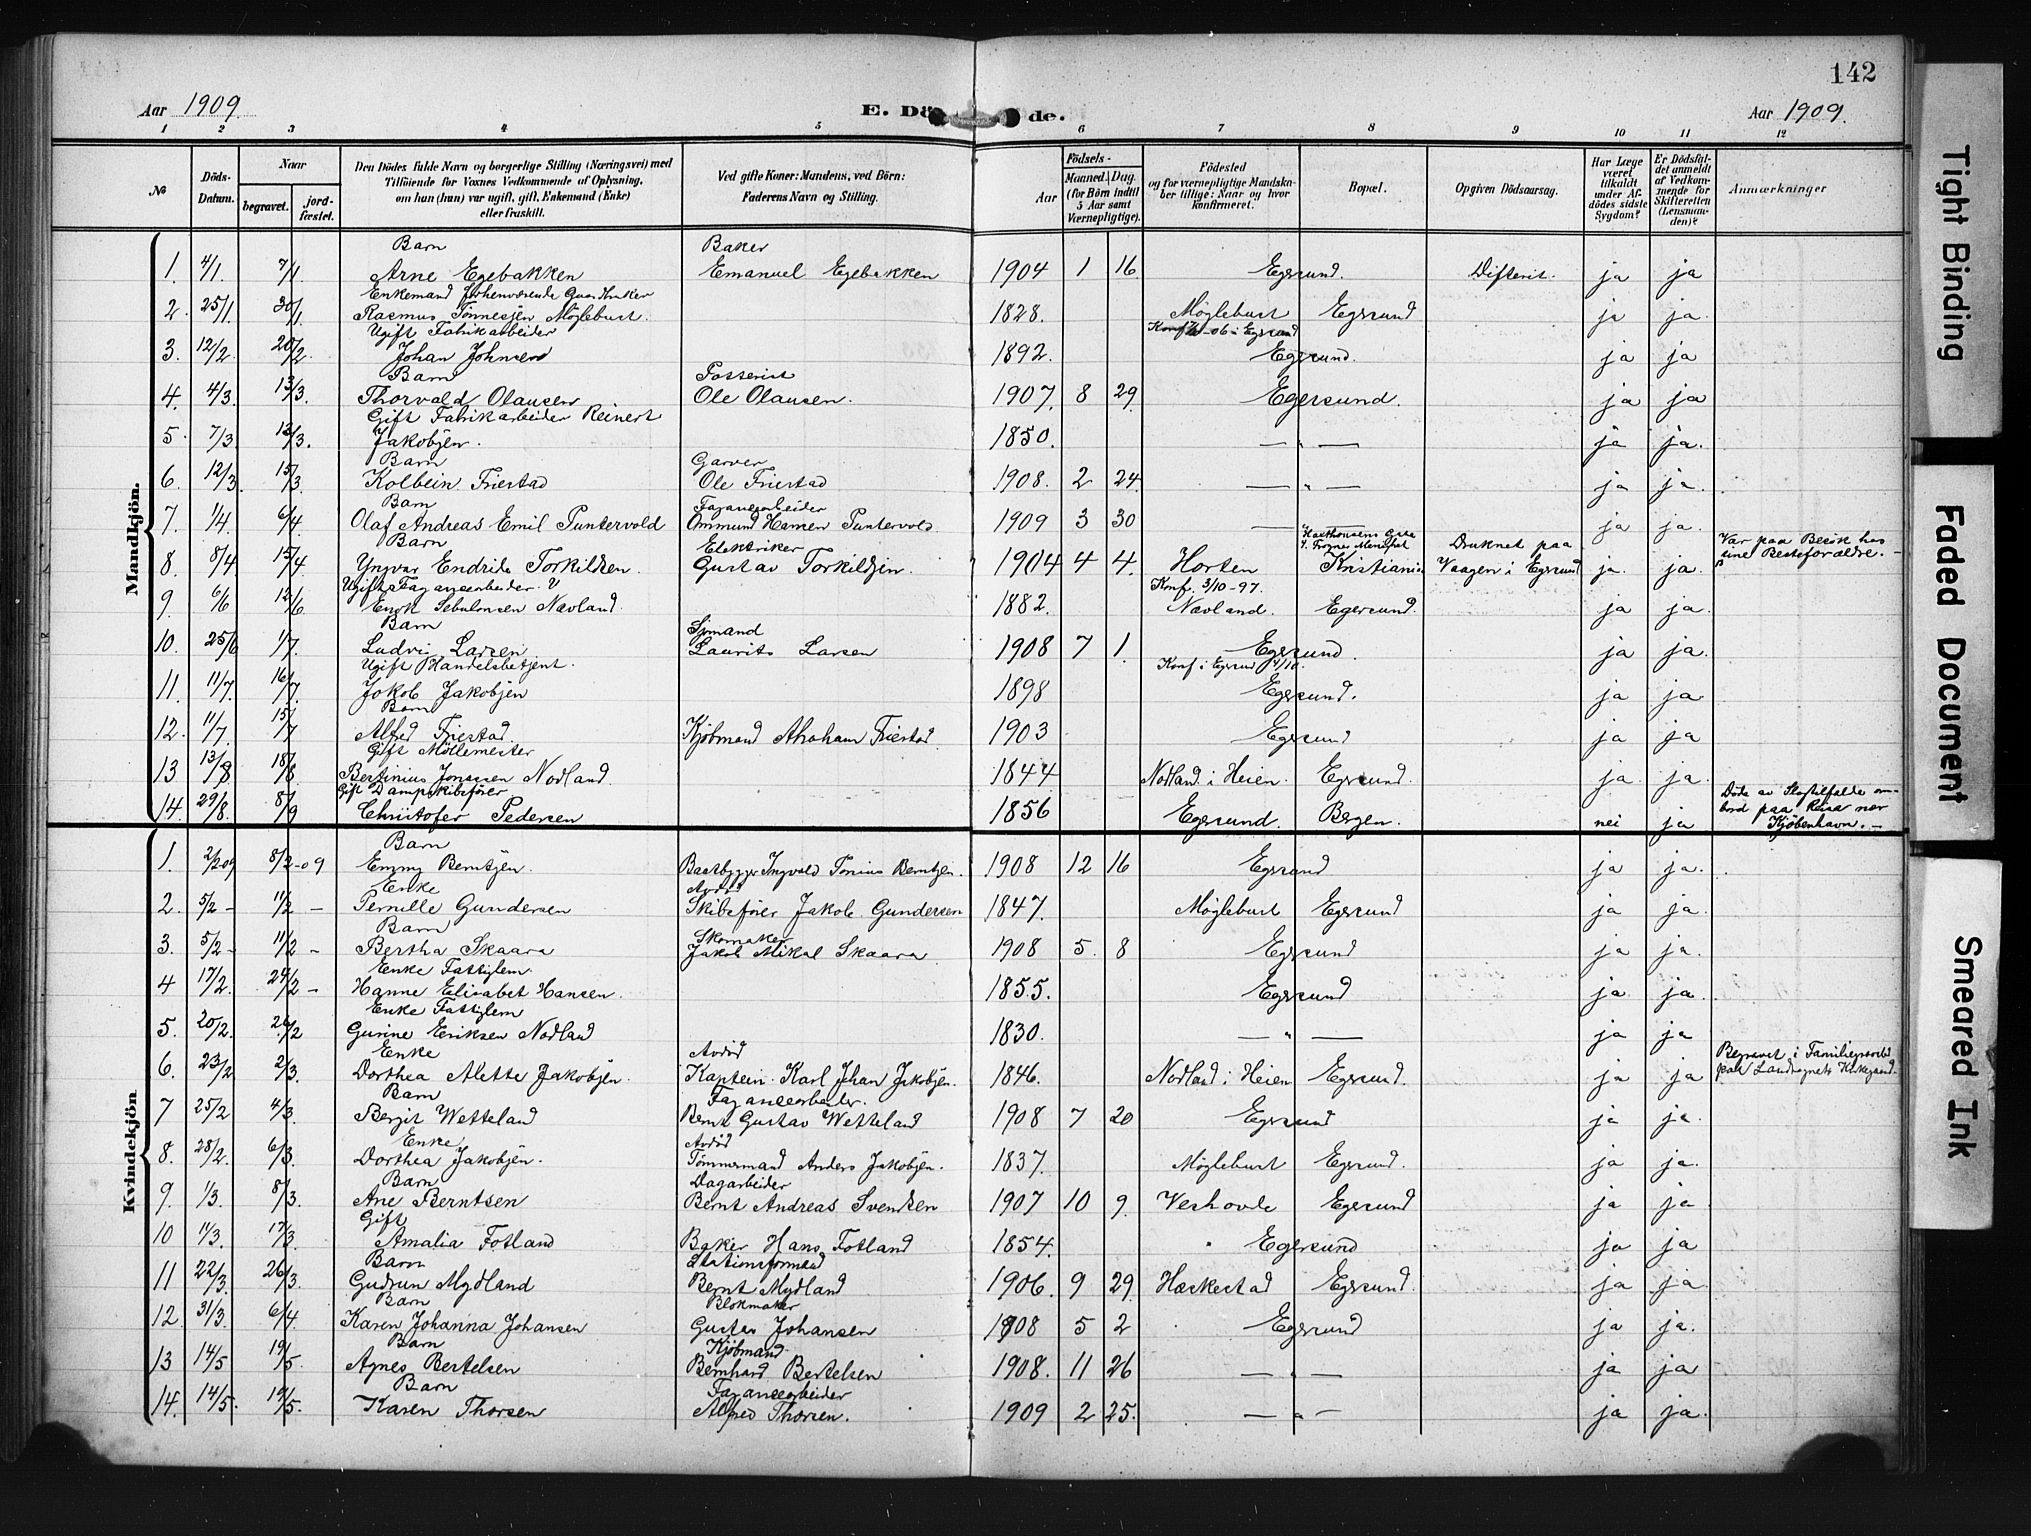 142
Aar 1909.
E. Dö de.
Aar 1909.
1 2 3 4 5 6 7 8 9 10 11 12
No
Döds-Datum.
Naar
begravet.
jord-fæstet.
Den Dödes fulde Navn og borgerlige Stilling (Næringsvei) med
Tilföiende for Voxnes Vedkommende af Oplysning,
om han (hun) var ugift, gift, Enkemand (Enke)
eller fraskilt.
Ved gifte Koner: Mandens, ved Börn:
Faderens Navn og Stilling.
Födsels-
Aar
Maaned. Dag.
(for Börn indtil
5 Aar samt
Værnepligtige).
Födested
og for værnepligtige Mandska-
ber tillige: Naar og hvor
konfirmeret.
Bopæl.
Opgiven Dödsaarsag.
Har Læge
været
tilkaldt
under Af-
dödes sidste
Sygdom?
Er Dödsfal-
det anmeldt
af Vedkom-
mende for
Skifteretten
(Lensman-
den)?
Anmærkninger
Mandkjön.
Barn Baker
1. 4/1. 7/1 Arne Egebakken Emanuel Egebakken 1904 1 16 Egersund. Difterit. ja ja
Enkemand
2. 25/1. 30/1 Rasmus Tönnesjen Möglebust. 1828. Möglebust Egersund ja ja.
Ugift Fabrikarbeider Konf -06 i Egersund
3. 12/2. 20/2. Johan Johnsen 1892. Egersund. ja ja
Barn
4. 4/3. 13/3. Thorvald Olausen Ole Olausen. 1907. 8 29. Egersund. ja ja
Gift Fabrikarbeider Reinert
5. 7/3. 13/3. Jakobsen. 1850. — " — ja ja.
Barn Garver
6. 12/3. 15/3. Kolbein Friestad Ole Friestad 1908. 2 24. — " — ja ja.
Barn Fayancearbeider
7. 1/4. 6/4 Olaf Andreas Emil Puntervold Ommund Hansen Puntervold 1909 3 30 — " ja ja.
Barn Elektriker Druknet paa Var paa Besök hos
8. 8/4 15/4. Yngvar Endride Torkildsen. Gustav Torkildsen. 1904 4 4. Horten Kristiania Vaagen i Egersund ja. ja sine Besteforældre.
Ugift Fayancearbeider. Konf. 3/10-97.
9. 6/6 12/6 Enok Sebulonsen Nevland. 1882. Nævland. Egersund. ja ja.
Barn Sjömand
10. 25/6 1/7. Ludvig Larsen Laurits Larsen 1908 7 1. Egersund. ja ja.
Ugift Handelsbetjent. Konf. i Egersund
11. 11/7. 16/7. Jakob Jakobsen 1898 Egersund. ja ja
Barn
12. 11/7. 15/7 Alfred Friestad. Kjöbmand Abraham Friestad. 1903 Egersund ja ja
Gift Möllemester
13 13/8 18/8 Bertinius Jonassen Nodland 1844 Nodland i Heien. Egersund. ja. ja.
Gift Dampskibsförer Döde av Slagtilfælde om-
14. 29/8. 8/9 Christofer Pedersen 1856 Egersund. Bergen. nei ja bord paa Reise nær
Kjöbenhavn. —
Kvindekjön
Barn
1. 2/2 09 8/2-09 Emmy Berntsen. Baatbygger Ingvald Tonius Berntsen. 1908 12 16 Egersund ja ja.
Enke Avdöd
2. 5/2 — 11/2 — Pernille Gundersen Skibsförer Jakob Gundersen 1847. Möglebust Egersund ja ja.
Barn Skomaker
3. 5/2 — 11/2 — Bertha Skaara Jakob Mikal Skaara. 1908 5. 8 Egersund ja ja.
Enke Fattiglem.
4 17/2. 24/2 — Hanne Elisabet Hansen. 1855. Egersund ja ja.
Enke Fattiglem
5. 20/2. 26/2 Gurine Eriksen Nodland 1830. — " — ja ja.
Enke Avdöd Begravet i Familiegravsted
6. 23/2 2/3. Dorthea Alette Jakobsen. Kaptein. Karl Johan Jakobsen. 1846. Nodland i Heien Egersund. ja ja paa Landsognets Kirkegaard.
Barn Fayancearbeider.
7 25/2 4/3. Bergit Wetteland Bernt Gustav Wetteland 1908 7 20 Egersund ja ja.
Enke Avdöd
8. 28/2. 6/3. Dorthea Jakobsen. Tömmermand Anders Jakobsen. 1837. Möglebust Egersund. ja ja.
Barn Dagarbeider
9. 1/3. 8/3. Ane Berntsen Bernt Andreas Svendsen 1907 10 9. Veshovde Egersund ja ja.
Gift
10 11/3. 17/3. Amalia Fotland Baker Hans Fotland 1854. Egersund ja ja
Barn Stationsformand
11 22/3. 26/3. Gudrun Mydland Bernt Mydland 1906. 9 29. Heskestad Egersund. ja ja.
Barn Blokmaker
12. 31/3. 6/4 Karen Johanna Johansen Gustav Johansen 1908 5 2 Egersund ja ja.
Barn Kjöbmand
13 14/5 19/5. Agnes Bertelsen Bernhard Bertelsen 1908. 11 26 — " — ja ja
Barn Fayancearbeider
14. 14/5. 19/5. Karen Thorsen Alfred Thorsen. 1909 2 25. — " — ja ja.
Tight Binding
Faded Document
Smeared Ink